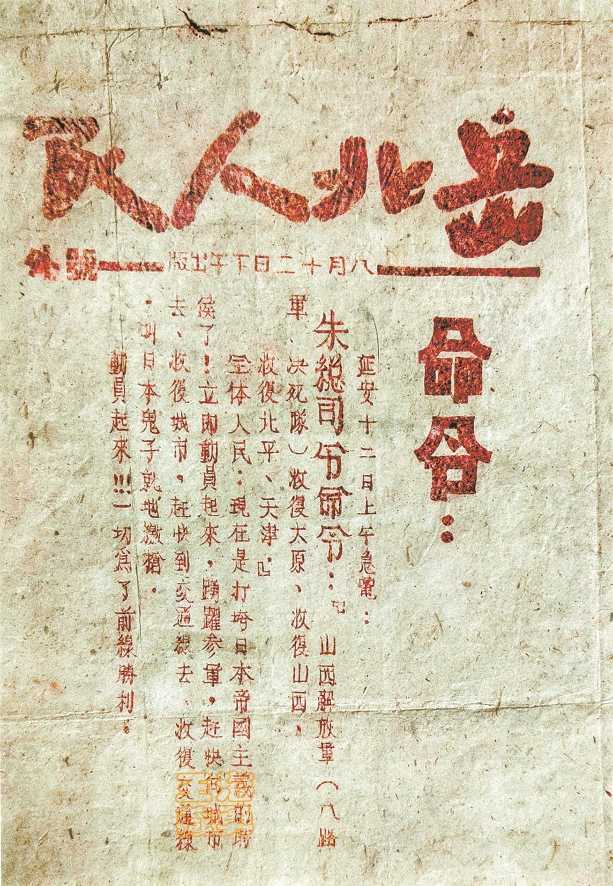 岳北人民
八月十二日下午出版
號外
命令：
延安十二日上午急電：
朱総司令命令：『山西解放軍（八路
軍、決死隊）收復太原、收復山西、
收復北平、天津。』
全体人民：現在是打垮日本帝國主義的時
侯了！立即動員起來，踴躍参軍，赶快向城市
去、收復城市，赶快到交通線去、收復交通線
，叫日本鬼子就地繳槍。
動員起來!!!一切為了前線勝利：